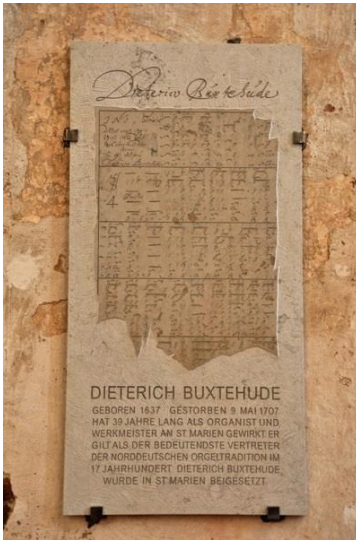 Dieterico Buxtehude
DIETERICH BUXTEHUDE
GEBOREN 1637 GESTORBEN 9. MAI 1707
HAT 39 JAHRE LANG ALS ORGANIST UND
WERKMEISTER AN ST. MARIEN GEWIRKT. ER
GILT ALS DER BEDEUTENDSTE VERTRETER
DER NORDDEUTSCHEN ORGELTRADITION IM
17. JAHRHUNDERT. DIETERICH BUXTEHUDE
WURDE IN ST. MARIEN BEIGESETZT.